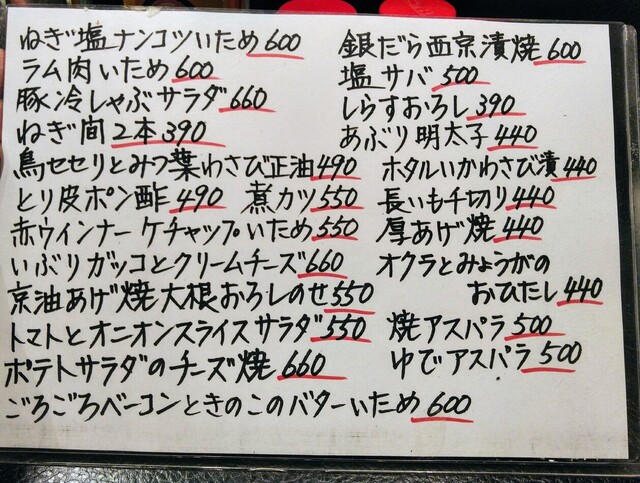 ねぎ塩ナンコツいため 600
ラム肉いため 600
豚冷しゃぶサラダ 660
ねぎ間 2本 390
鳥セセリとみつ葉わさび正油 490
とり皮ポン酢 490 煮カツ 550
赤ウィンナーケチャップいため 550
いぶりガッコとクリームチーズ 660
京油あげ焼大根おろしのせ 550
トマトとオニオンスライスサラダ 550
ポテトサラダのチーズ焼 660
ごろごろベーコンときのこのバターいため 600
銀だら西京漬焼 600
塩サバ 500
しらすおろし 390
あぶり明太子 440
ホタルいかわさび漬 440
長いも千切り 440
厚あげ焼 440
オクラとみょうがの
おひたし 440
焼アスパラ 500
ゆでアスパラ 500